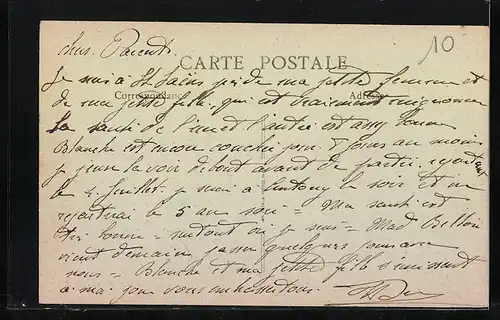 chers Parents
10
CARTE POSTALE
Je suis à St Saëns près de ma petite femme et
Correspondance Adresse
de ma petite fille, qui est vraiment mignonne
La santé de l'une et l'autre est assez bonne
Blanche est encore couchée pour 8 jours au moins
je pense la voir debout avant de partir,
le 4 Juillet. je serai à Antony le soir et ne
le 5 au soir = Ma santé est
très bonne = surtout où je suis = Mad
vient demain passer quelques jours avec
nous = Blanche et ma petite fille s'unissent
à moi pour vous embrasser tous.